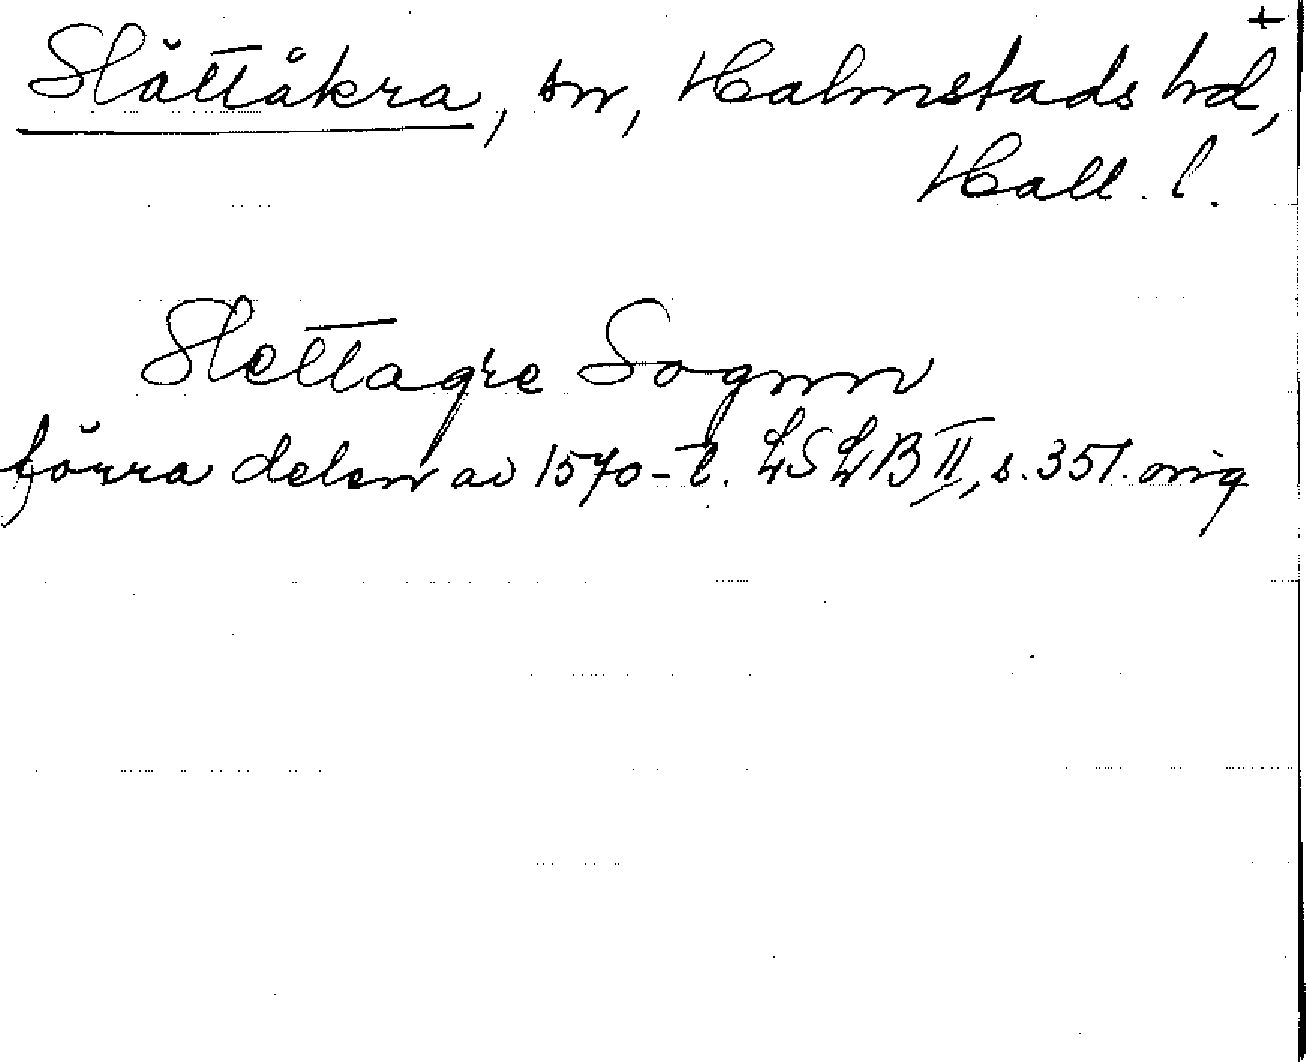 +
Slättåkra, sn, Halmstads hd,
Hall. l.
Slettagre Sognn
förra delen av 1570-t. LSLB II, s. 351. orig